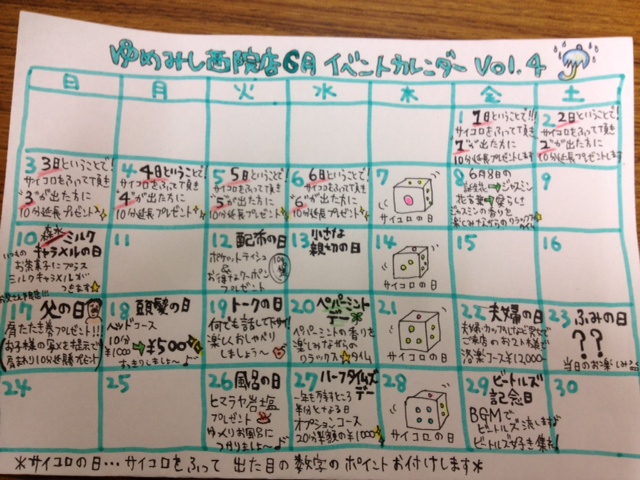 ゆめみし西院店6月イベントカレンダー Vol.4
日 月 火 水 木 金 土
1 1日ということで!!!
サイコロをふって頂き
"1"が出た方に
10分延長プレゼントします
2 2日ということで!
サイコロをふって頂き
"2"が出た方に
10分延長プレゼントします
3 3日ということで!
サイコロをふって頂き
"3"が出た方に
10分延長プレゼント
4 4日ということで!
サイコロをふって頂き
"4"が出た方に
10分延長プレゼント
5 5日ということで!
サイコロをふって頂き
"5"が出た方に
10分延長プレゼント
6 6日ということで!
サイコロをふって頂き
"6"が出た方に
10分延長プレゼント
7
サイコロの日
8 6月8日の
誕生花→ジャスミン
花言葉→愛らしさ
ジャスミンの香りを
楽しみながらのリラックスタイム
9
10 森永ミルク
キャラメルの日
いつもの
お茶菓子にプラス
ミルクキャラメルが
つきます
11
12 配布の日
ポケットティッシュ
&
お得なクーポン
プレゼント
13 小さな
親切の日
14
サイコロの日
15
16
17 父の日
肩たたき券プレゼント!!!
お子様の写メを提示で
肩まわり10分延長プレゼント
18 頭髪の日
ヘッドコース
10分
¥1000→¥500
おっきりましたー♪
19 トークの日
何でも話して下さい!
楽しくおしゃべり
しましょう〜
20 ペパーミント
デー
ペパーミントの香りを
楽しみながらの
リラックスタイム
21
サイコロの日
22 夫婦の日
夫婦・カップルなど2人で
ご来店のお2人様で
洛楽コース¥12,000-
23 ふみの日
??
当日のお楽しみ♪
24
25
26 風呂の日
ヒマラヤ岩塩
プレゼント
ゆっくりお風呂に
つかりましょ〜♪
27 ハーフタイムズ
デー
一年を残すところ
半分となる日
オプションコース
20分半額の¥1000
28
サイコロの日
29 ビートルズ
記念日
BGMで
ビートルズ流します
ビートルズ好き集れ!
30
*サイコロの日…サイコロをふって出た目の数字のポイントお付けします*